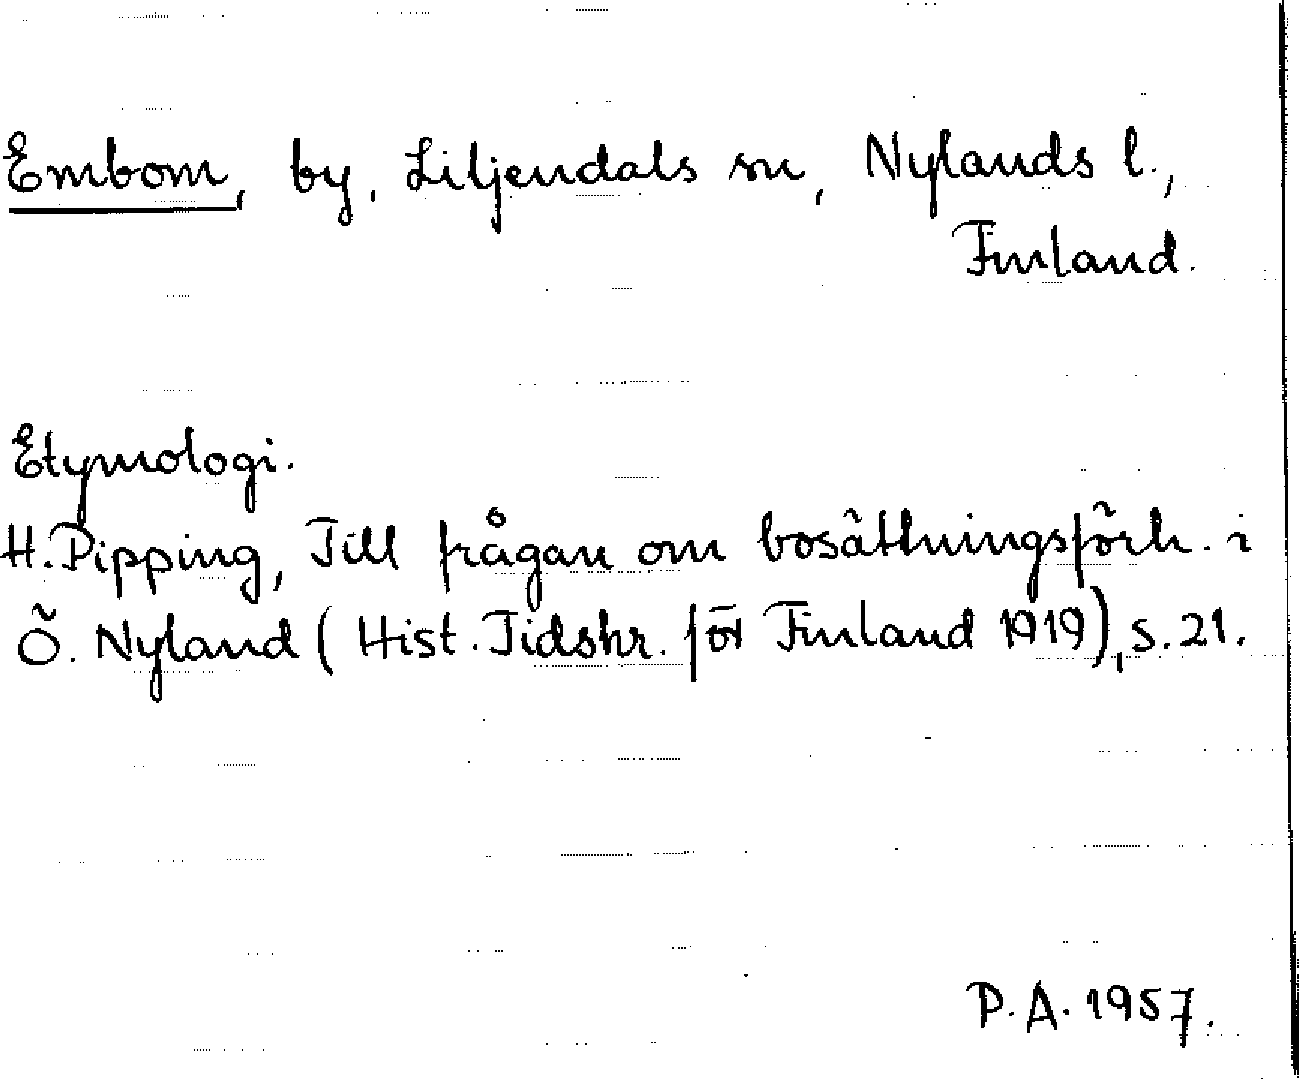 Embom, by, Liljendals sn, Nylands l.,
Finland.
Etymologi.
H. Pipping, Till frågan om bosättningsförh. i
Ö. Nyland (Hist. Tidskr. för Finland 1919), s. 21.
P. A. 1957.